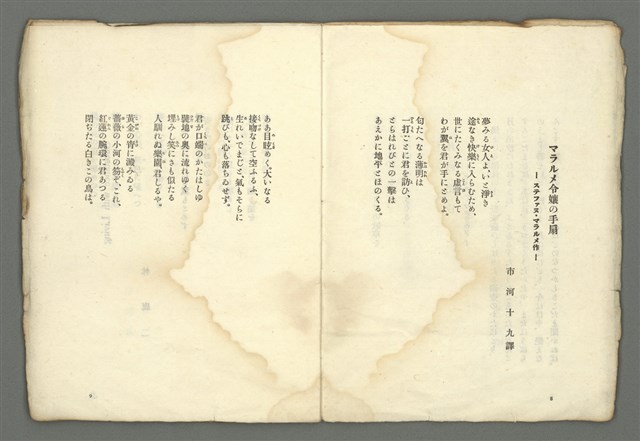 マラルメ令孃の手扇
― ステファヌ・マラルメ作 ―
市河十九譯
夢みる女人よ、いと淨き
途なき快樂に入らむため、
世にたくみなる虛言もて
わが翼を君が手にとめよ。
匂たへなる薄明は
一打ごとに君を訪ひ、
とらはれびとの一擊は
あえかに地平とほのくる。
ああ目眩めく、大いなる
接吻なして空ふるふ、
生れいでまじと、氣もそらに
跳びも、心も落ちゐせず。
君が口端のかたはしゆ
甕地の奧に流れゆく
埋みし笑にさも似たる
人馴れぬ樂園君しるや。
黃金の宵に澱みゐる
薔薇の小河の笏ぞ、これ、
紅蓮の腕環に君あつる
閉ぢたる白きこの鳥は。